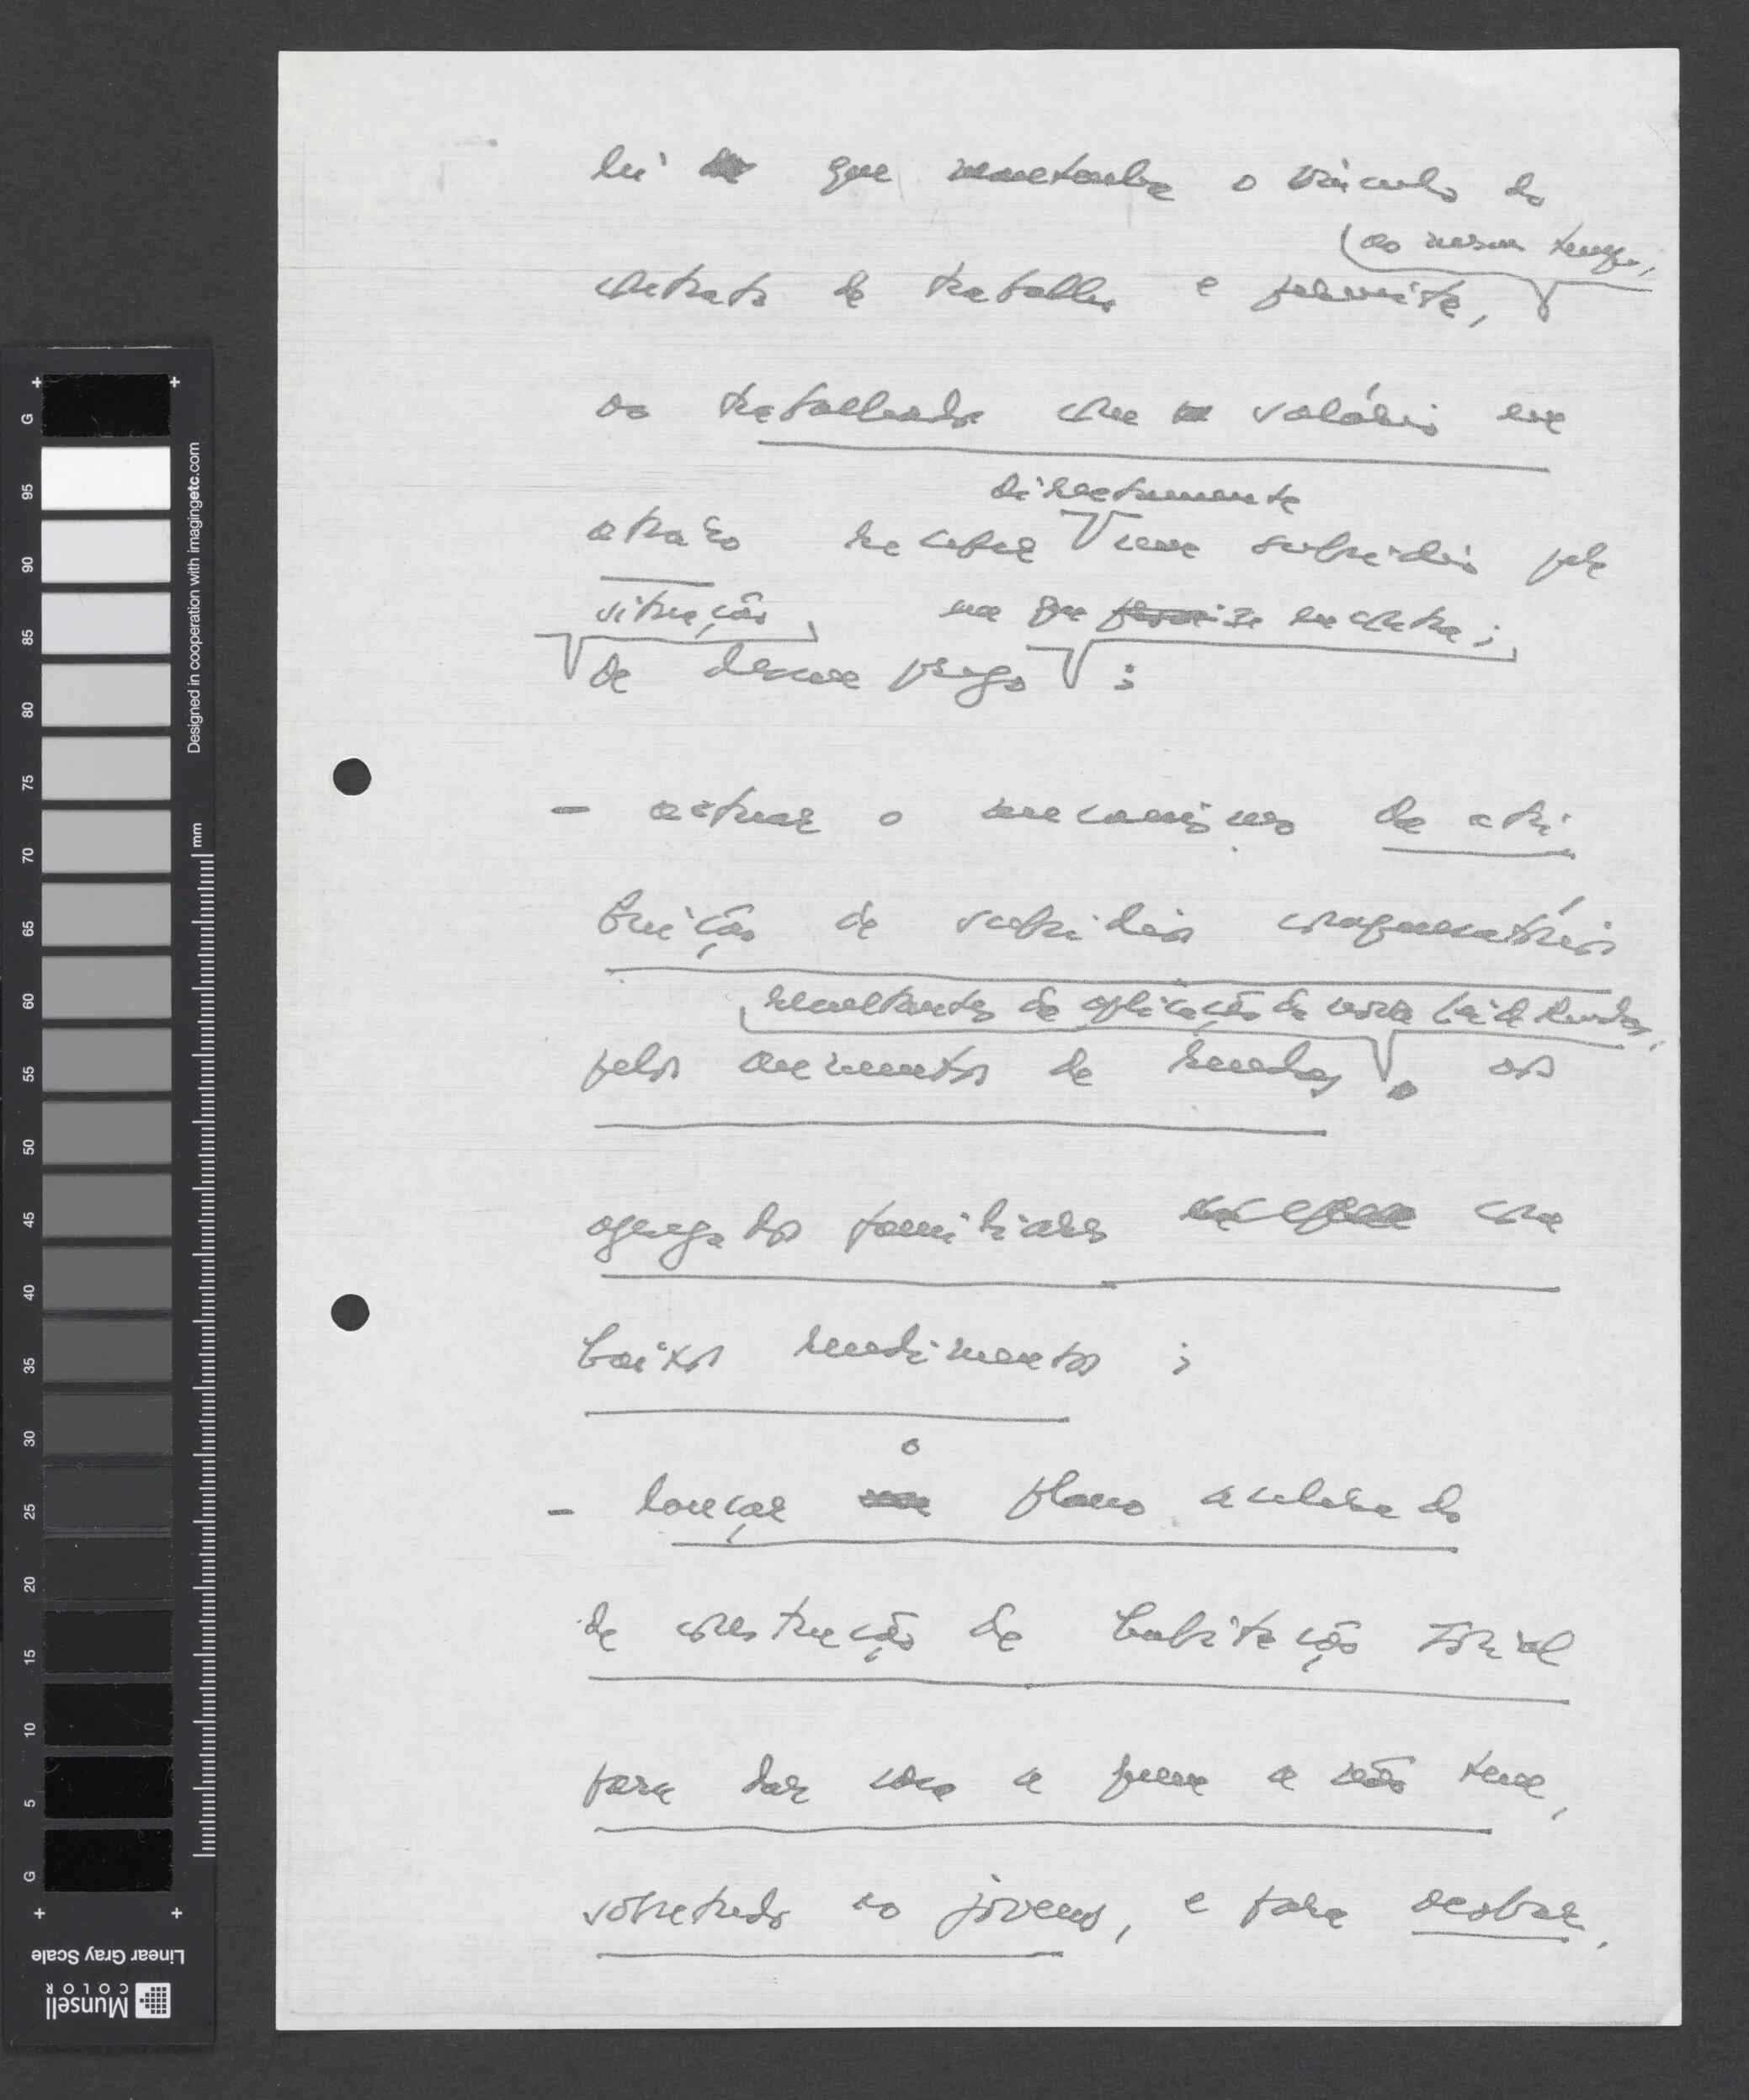 lei que mantenha o vínculo do
(ao mesmo tempo,
contrato de trabalho e permite,
ao trabalhador com salário em
directamente
atrazo receber um subsídio pela
situação, na que se encontra;
de desemprego;
- activar o mecanismo de atri
buição de subsídios compensatórios
resultantes da aplicação da nova lei de Rendas,
pelos aumentos de rendas, aos
agregados familiares com
baixos rendimentos;
o
- lançar plano acelerado
de construção de habitação social
para dar casa a quem a não tem,
sobretudo ao jovens, e para acabar,
Designed in cooperation with imagingetc.com
mm
G 95 90 85 80 75 70 65 60 55 50 45 40 35 30 25 20 15 10 5 G
Linear Gray Scale
Munsell
COLOR